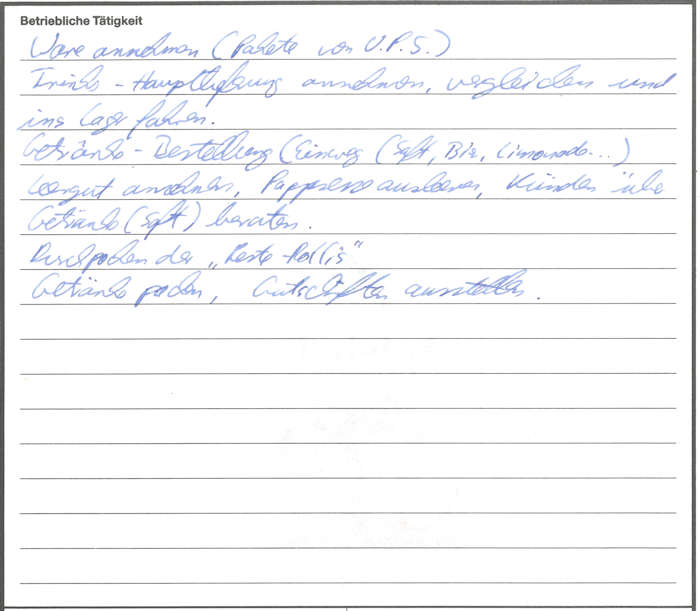 Betriebliche Tätigkeit
Ware annehmen (Pakete von U.P.S.)
Trinks - Hauptlieferung annehmen, vergleichen und
ins Lager fahren.
Getränke - Bestellung (Einweg (Saft, Bier, Limonade...)
Leergut annehmen, Pappresse ausleeren, Kunden über
Getränke (Saft) beraten.
Durchpacken der „Reste-Rollis“
Getränke packen, Gutschriften ausstellen.